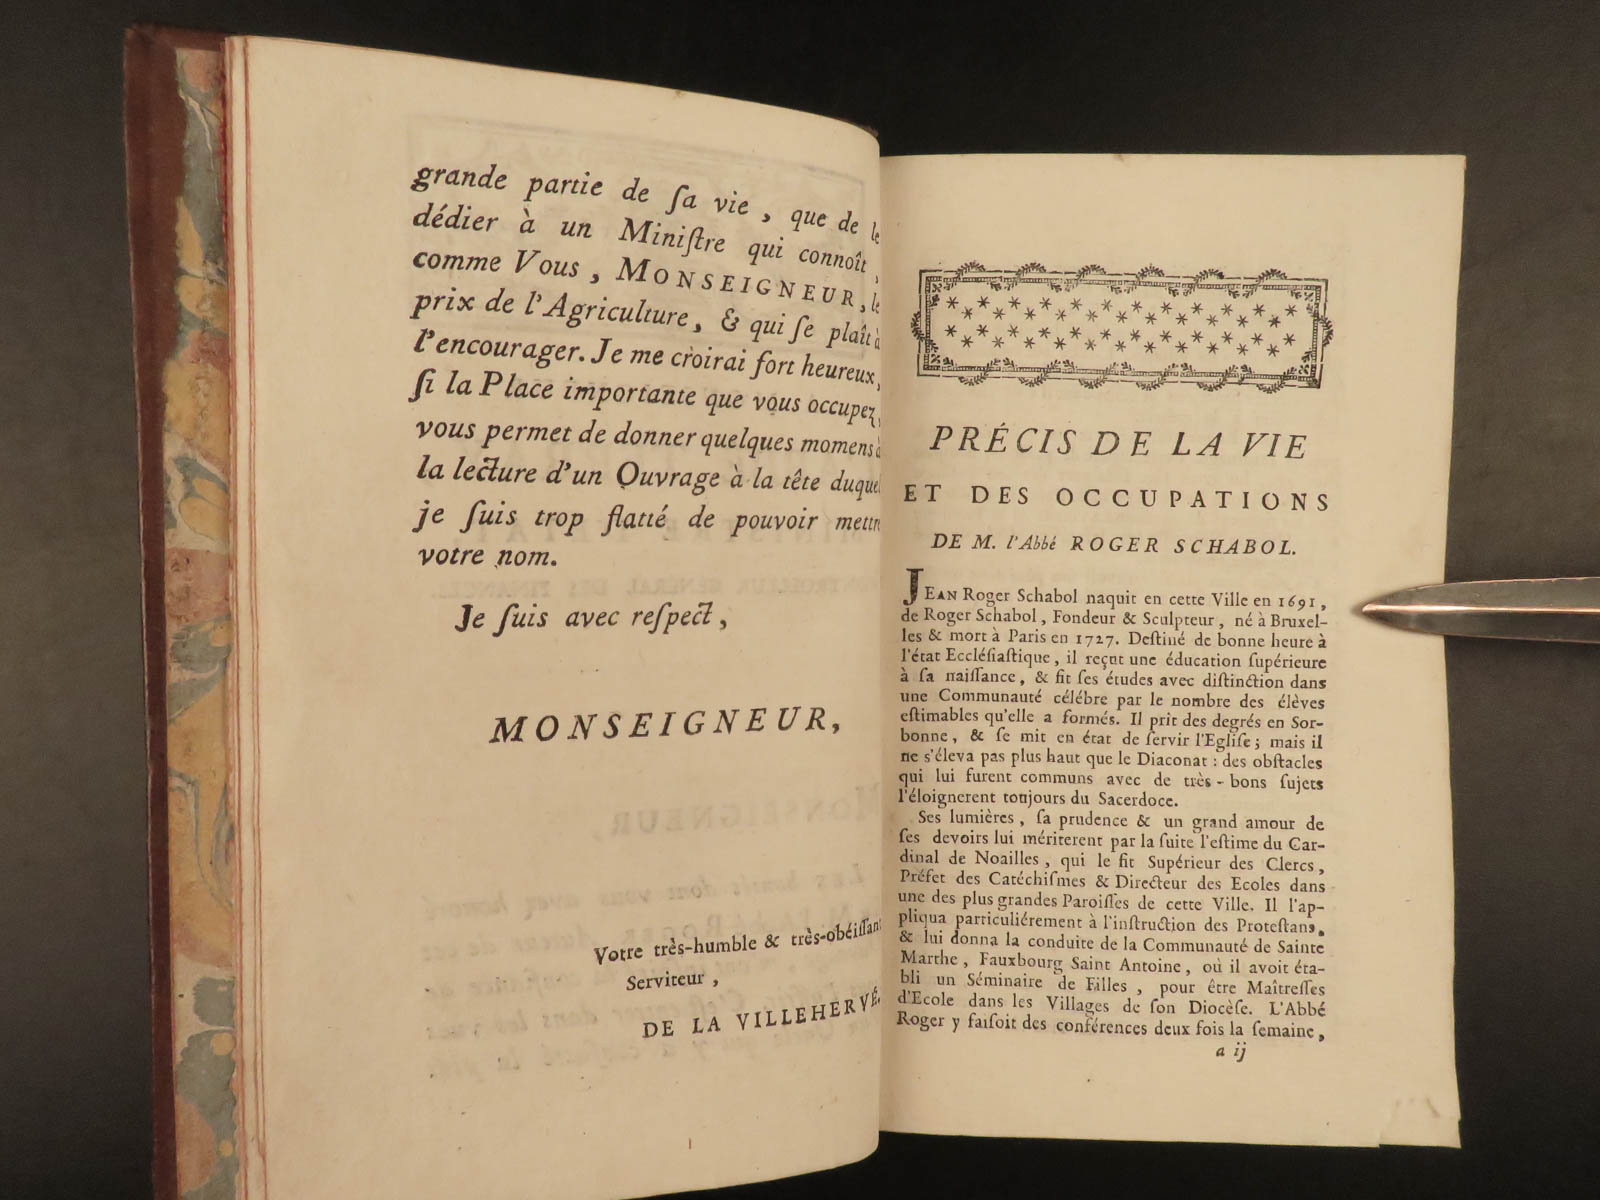 grande partie de ſa vie, que de le
dédier à un Miniſtre qui connoît,
comme Vous, MONSEIGNEUR, le
prix de l'Agriculture, & qui ſe plaît à
l'encourager. Je me croirai fort heureux,
ſi la Place importante que vous occupez,
vous permet de donner quelques momens à
la lecture d'un Ouvrage à la tête duquel
je ſuis trop flatté de pouvoir mettre
votre nom.
Je ſuis avec reſpect,
MONSEIGNEUR,
Votre très-humble & très-obéiſſant
Serviteur,
DE LA VILLEHERVÉ.
PRÉCIS DE LA VIE
ET DES OCCUPATIONS
DE M. l'Abbé ROGER SCHABOL.
JEAN Roger Schabol naquit en cette Ville en 1691,
de Roger Schabol, Fondeur & Sculpteur, né à Bruxel-
les & mort à Paris en 1727. Deſtiné de bonne heure à
l'état Eccléſiaſtique, il reçut une éducation ſupérieure
à ſa naiſſance, & fit ſes études avec diſtinction dans
une Communauté célébre par le nombre des élèves
eſtimables qu'elle a formés. Il prit des degrés en Sor-
bonne, & ſe mit en état de ſervir l'Egliſe; mais il
ne s'éleva pas plus haut que le Diaconat: des obſtacles
qui lui furent communs avec de très-bons ſujets
l'éloignerent toujours du Sacerdoce.
Ses lumières, ſa prudence & un grand amour de
ſes devoirs lui mériterent par la ſuite l'eſtime du Car-
dinal de Noailles, qui le fit Supérieur des Clercs,
Préfet des Catéchiſmes & Directeur des Ecoles dans
une des plus grandes Paroiſſes de cette Ville. Il l'ap-
pliqua particuliérement à l'inſtruction des Proteſtans,
& lui donna la conduite de la Communauté de Sainte
Marthe, Fauxbourg Saint Antoine, où il avoit éta-
bli un Séminaire de Filles, pour être Maîtreſſes
d'Ecole dans les Villages de ſon Diocèſe. L'Abbé
Roger y faiſoit des conférences deux fois la ſemaine,
a ij